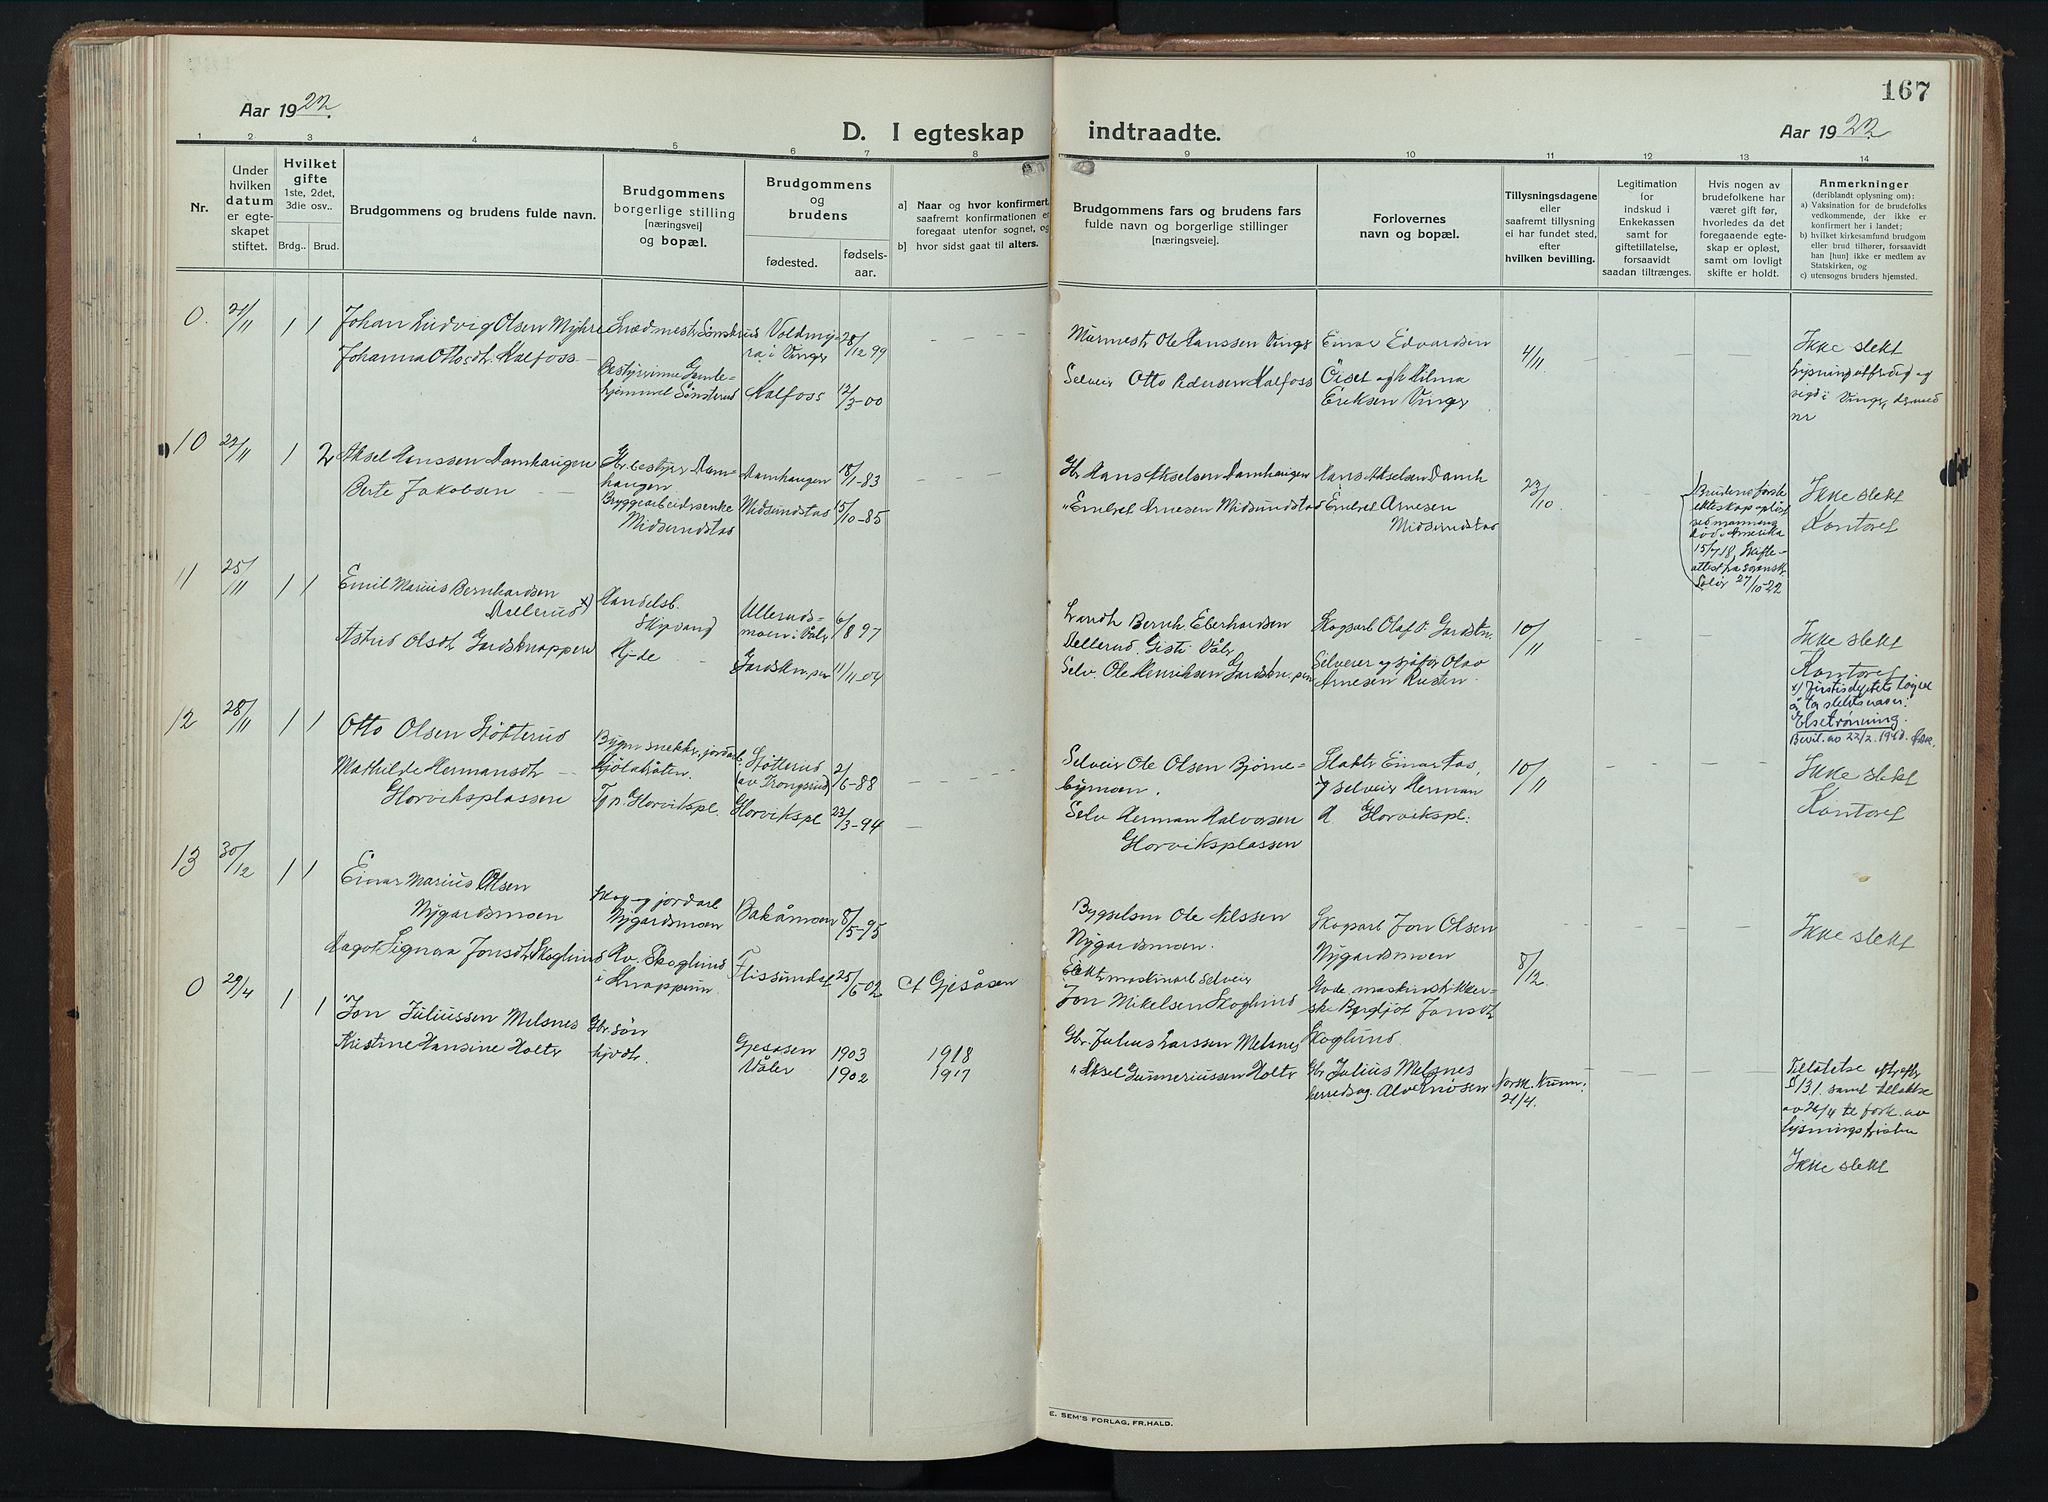 167
Aar 1922.
D. I egteskap indtraadte.
Aar 1922
1 2 3 4 5 6 7 8 9 10 11 12 13 14
Nr.
Under
hvilken
datum
er egte-
skapet
stiftet.
Hvilket
gifte
1ste, 2det,
3die osv..
Brdg..
Brud.
Brudgommens og brudens fulde navn.
Brudgommens
borgerlige stilling
[næringsvei]
og bopæl.
Brudgommens
og
brudens
fødested.
fødsels-
aar.
a] Naar og hvor konfirmert,
saafremt konfirmationen er
foregaat utenfor sognet, og
b] hvor sidst gaat til alters.
Brudgommens fars og brudens fars
fulde navn og borgerlige stillinger
[næringsveie].
Forlovernes
navn og bopæl.
Tillysningsdagene
eller
saafremt tillysning
ei har fundet sted,
efter
hvilken bevilling.
Legitimation
for
indskud i
Enkekassen
samt for
giftetillatelse,
forsaavidt
saadan tiltrænges.
Hvis nogen av
brudefolkene har
været gift før,
hvorledes da det
foregaaende egte-
skap er opløst,
samt om lovligt
skifte er holdt.
Anmerkninger
(deriblandt oplysning om):
a) Vaksination for de brudefolks
vedkommende, der ikke er
konfirmert her i landet;
b) hvilket kirkesamfund brudgom
eller brud tilhører, forsaavidt
han [hun] ikke er medlem av
Statskirken, og
c) utensogns bruders hjemsted.
0. 21/11 1 1
Johan Ludvig Olsen Myhre
Johanna Ottosdtr. Kalfoss
Bestyrerinne Gamle-
hjemmet Sønsterud
i Vinger
Kalfoss
28/12 99
12/3-00
Murmest Ole Hanssen Vinger
Selveir Otto Pedersen Kalfoss
Einar Edvardsen
Öiset og h Hilma
Eriksen Vinger
4/11
Ikke slekt
vigd i Vinger, dermed
nr
10 22/11 1 2
Aksel Hanssen Damhaugen
Berte Jakobsen
Gbr bestyrer Dam-
haugen
Midsundstad
Damhaugen
Midsundstad
18/1-83
15/10-85
Gbr Hans Akselsen Damhaugen
" Embret Arnesen Midsundstad
Hans Akselsen Damh
Embret Arnesen
Midsundstad
23/10
Brudens første
ekteskap opløst
ved mannens
død i Amerika
15/7 18. Skifte-
attest fra sorenskr.
Solør 27/10-22
Ikke slekt
Kontoret
11 25/11 1 1
Emil Marius Bernhardsen
Dellerud x)
Astrid Olsdtr Gardsknappen
Handelsb.
Skipvand
Hj-de
Ulleruds-
moen i Våler
6/8 97
11/11-04
Landh Bernh Eberhardsen
Dellerud, Gisti Våler
Selv. Ole Henriksen
Skogsarb Olaf O.
Selveier og sjåfør Olav
Arnesen Rusten
10/11
Ikke slekt
Kontoret
Elsetrönning.
Bevil. av 22/2. 1940.
12 28/11 1 1
Otto Olsen Støtterud
Mathilde Hermansdtr
Glorviksplassen
Bygn snekker, jordarb.
Kjölahåten.
Tj. p. Glorvikspl.
Støtterud
Glorvikspl
2/6-88
23/3-94
Selveir Ole Olsen Björne-
bymoen.
Selv Herman Halvorsen
Glorviksplassen
Slakter Einar Aas,
og selveir Herman
H. Glorvikspl.
10/11
Ikke slekt
Kontoret
13 30/12 1 1
Einar Marius Olsen
Nygardsmoen
Magot Signora Jonsdtr Skoglund
Skog- og jordarb
Nygardsmoen
Hv. Skoglund
i Knappum
Bakåmoen
Flissundet
8/5-95
25/6 02
Bygselsm Ole Nilssen
Nygardsmoen.
Elektr maskinarb selveir
Jon Mikelsen Skoglund
Skogarb Jon Olsen
Nygardsmoen
Gade, maskinstrikker-
ske Bergljot Jonsdtr
Skoglund.
8/12.
Ikke slekt
0 29/4 1 1
Jon Juliussen Melsnes
Kristine Hansine Holter
Gbr. sön
hjvdtr.
Gjesåsen
Våler
1903
1902
Gjesåsen
1918
1917
Gbr. Julius Larssen Melsnes
" Aksel Gunneriussen Holter
Gbr Julius Melsnes
herredsag. Alvernösen
21/4.
Tillåtelse
§ 131 samt tillåtelse
av 26/4 til fork. av
lysningsfristen
Ikke slekt
E. SEM'S FORLAG, FR.HALD.